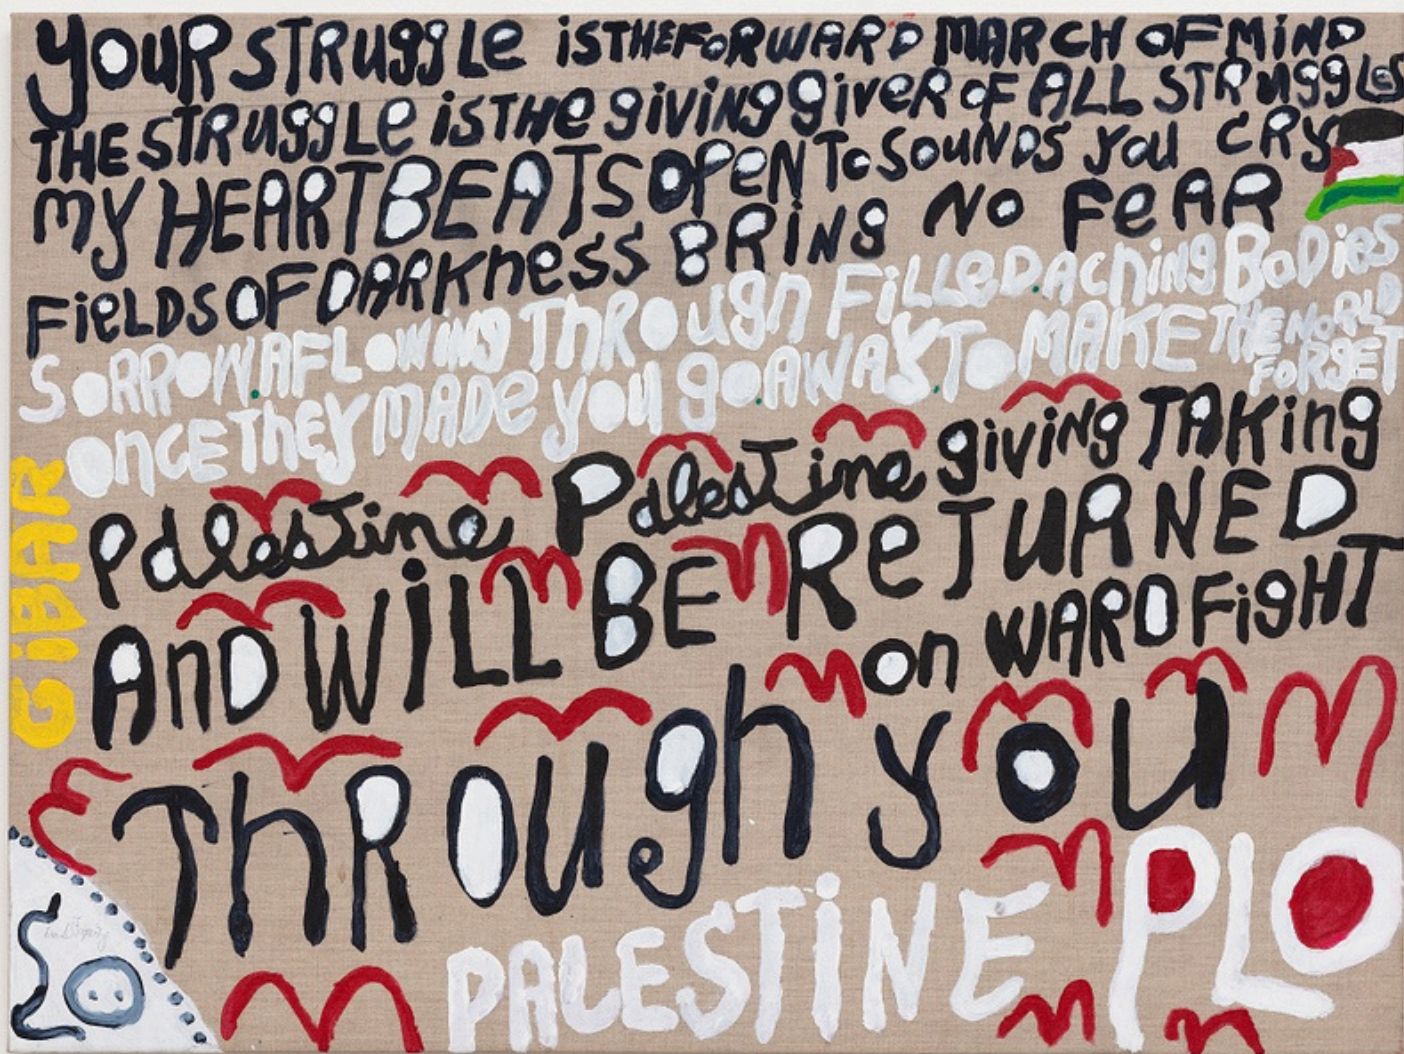 yOUR STRUggLe iSTHEFoRWARD MARCH OF MiND
THE STRuggLe iSTHe giViNg giveR oF ALL STRuggLes
my HEARTBEATS OPeN To SouNDS you CRy
FieLDS OF DARKness BRiNg No FeAR
SoRROWAFLoWiNg ThROugh FiLLeD.AChiNg BoDies
onCE ThEy MADe you go.AWAy.To MAKE THE WoRLD
FoRgET
Palestine Palestine giving TAKing
AnD WiLL BE ReTURNED
on WARD FigHT
ThROugh you
PALESTiNE PLO
GiBAR